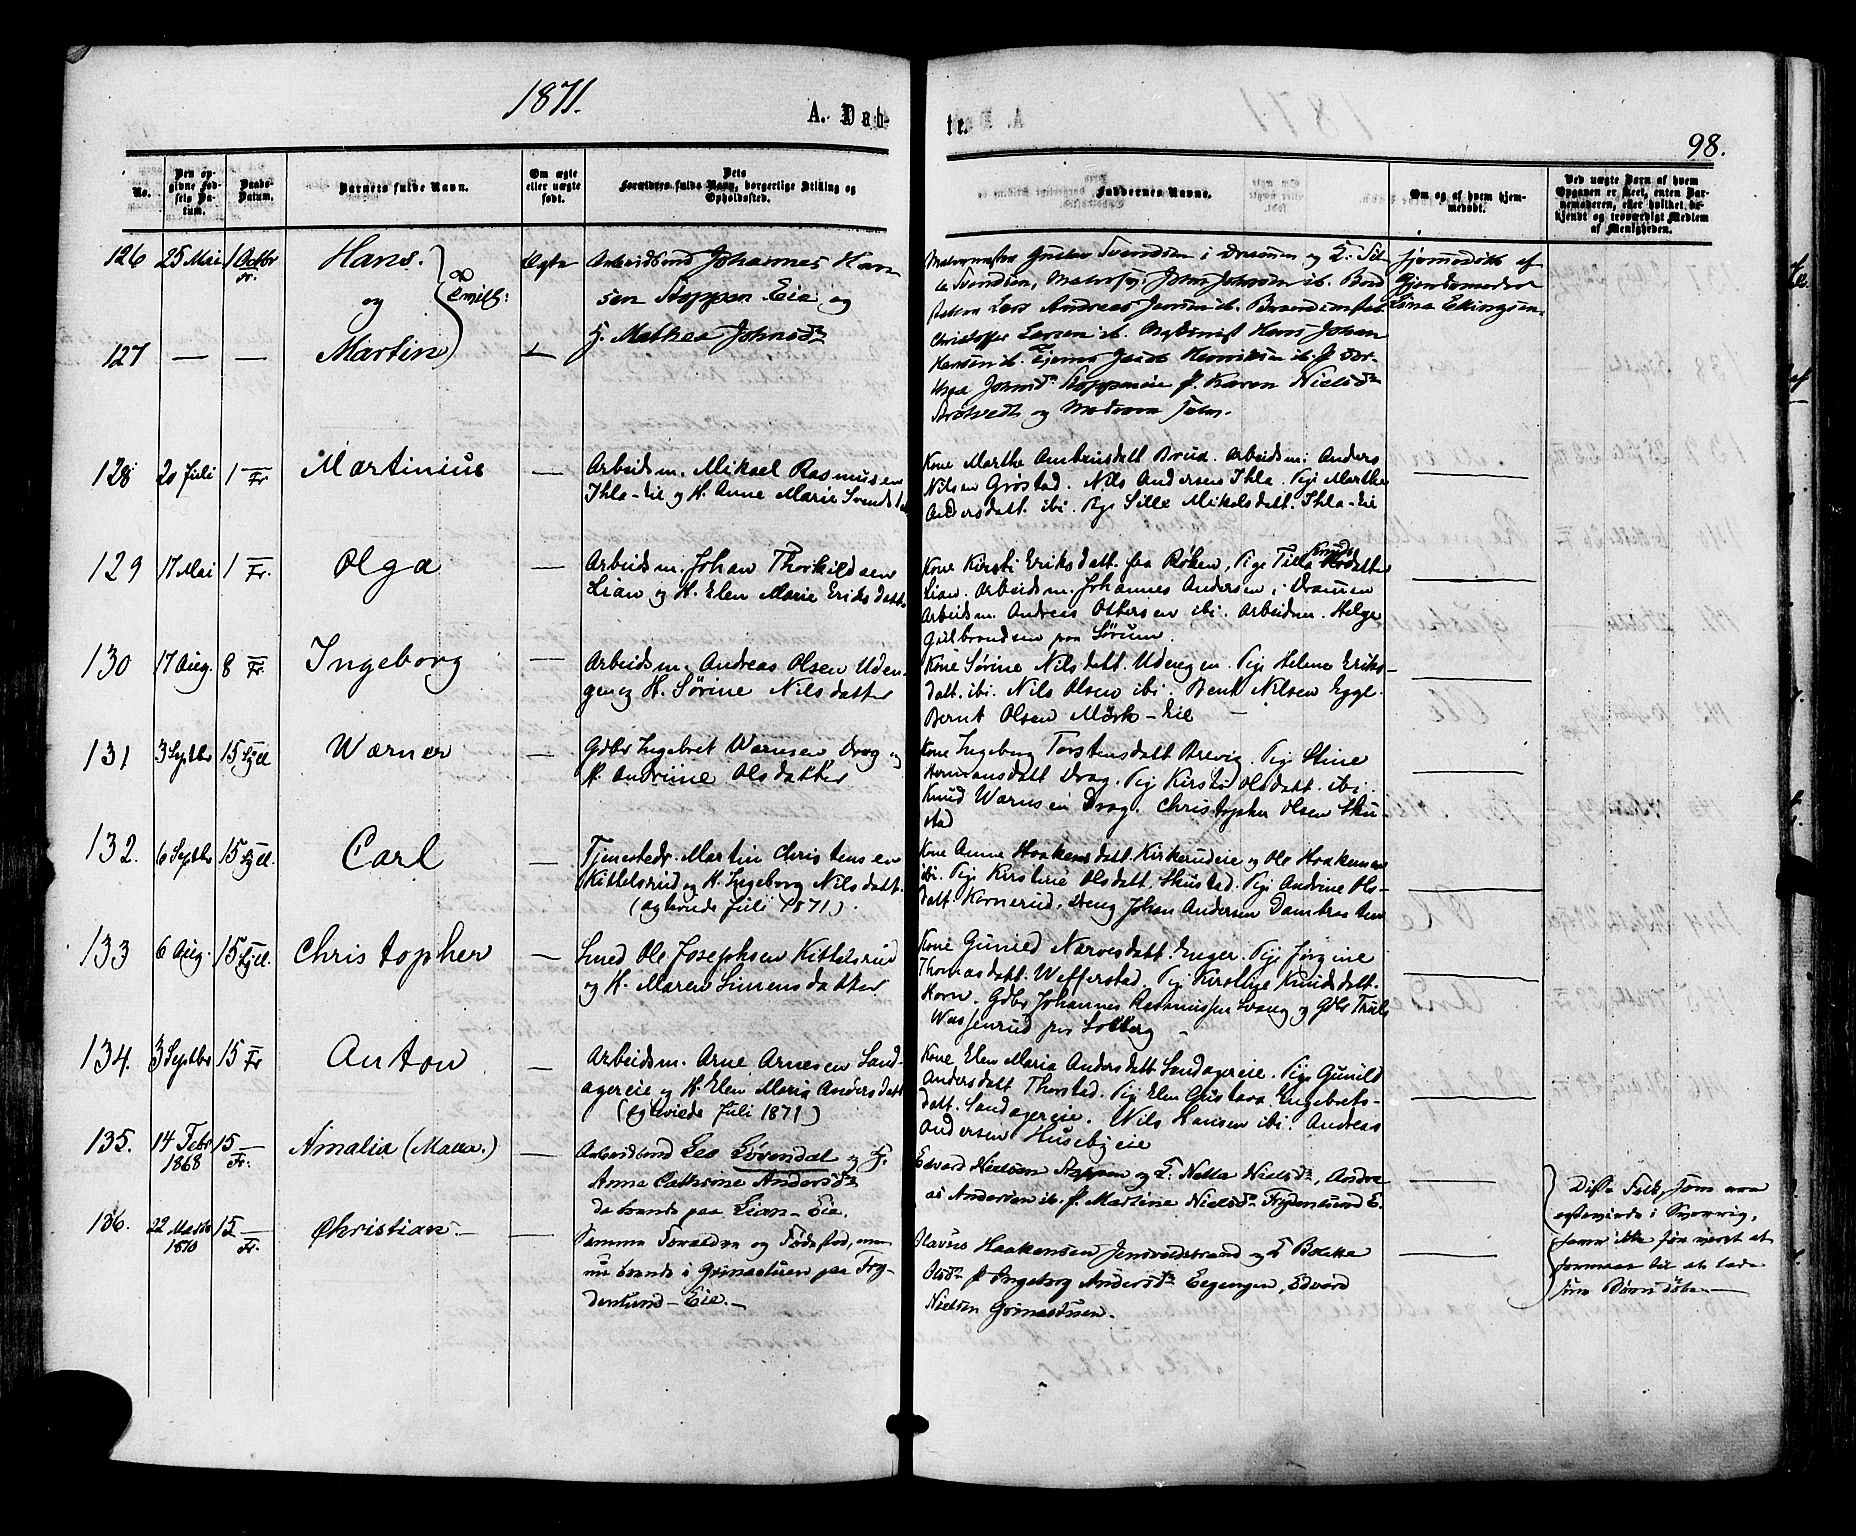 1871.
A. Døb-
te.
98.
No.
Den op-
givne Fød-
sels Da-
tum.
Daabs-
Datum.
Barnets fulde Navn.
Om ægte
eller uægte
født.
Dets
Forældres fulde Navn, borgerlige Stilling og
Opholdssted.
Faddernes Navne.
Om og af hvem hjem-
medøbt.
Ved uægte Barn af hvem
Opgaven er skeet, enten Bar-
nemoderen, eller hvilket be-
kjendt og troværdigt Medlem
af Menigheden.
126 25 Mai 1 Octbr Fr. Hans. Ægte Arbeidsmd Johannes Han-
sen Stoppen Eie og
H. Mathea Johnsdr
og
Tvill:
127 — — Martin
Gustav Svendsen i Drammen og H. Sil-
le Svendsen, John Johnsen ib.
Lars Andreas Jensen ib.
Christoffer Larsen ib. Hans Johan
Hansen ib. Henriksen ib. P.
Johnsdr Stoppeneie P. Karen Nielsdr
og Moderen selv.
hjemmedøbt af
Gjordemoder
Lina Ellingsen.
128 20 Juli 1 — Fr Martinius — Arbeidsm. Mikael Rasmussen
Ihla-Eie og H. Anne Marie Svendsdatt
Kone Marthe Ambrusdatt Brud. Arbeidsm: Anders
Nilsen Grøstad. Nils Andersen Ihla. Pige Marthe
Andersdatt. ibi. Pge Sille Mikelsdatt. Ihla-Eie
129 17 Mai 1 — Fr. Olga — Arbeidsm. Johan Thorkildsen
Lian og H. Elen Marie Eriksdatte
Kone Kirsti Eriksdatt. fra Røken, Pige Tilla Knudsdatte
Lian. Arbeidsm. Johannes Andersen i Dramen
Arbeidsm. Andreas Ottersen ibi. Arbeidsm. Helge
Gulbrandsen paa Sørum.
130 17 Aug. 8 — Fr. Ingeborg — Arbeidsm. Andreas Olsen Uden-
gen og H. Sørine Nilsdatter
Kone Sørine Nilsdatt. Udengen. Pige Helene Eriks-
datt. ibi. Nils Olsen ibi. Bent Nilsen Egge.
Bernt Olsen Mörk-Eie —
131 3 Septbr 15 Sjll Werner — Gdbr Ingebret Wernsen Drag og
H. Andrine Olsdatter
Kone Ingeborg Torstensdatt Brevig. Pige Stine
Hermansdatt Drag. Pig Kirsti Olsdatt. ibi.
Knud Wernsen Drag. Christopher Olsen Sku-
stad
132. 6 Septbr 15 Sjll. Carl — Tjenestedr. Martin Christensen
Kittelsrud og H. Ingeborg Nilsdatt.
(ægteviede Juli 1871).
Kone Anne Haakensdatt. Kirkerudeie og Ole Haakensen
ibi. Pige Kirstine Olsdatt. Skustad. Pige Andrine Ols-
datt. Kornerud. Dreng Johan Andersen Dambraaten
133 6 Aug. 15 Sjll. Christopher — Smed Ole Josephsen Kittelsrud
og H. Maren Simensdatter
Kone Gunild Narvesdatt. Enger. Pige Jørgine
Thomasdatt. Wefferstad. Pig Karoline Knudsdatt.
Korn. Gdbr Johannes Rasmussen Svang og Gdbr Truls
Wassenrud paa Solberg —
134. 3 Septbr 15 Fr Anton — Arbeidsm. Arne Arnesen Sand-
agereie og H. Elen Maria Andersdatt
(ægteviede Juli 1871)
Kone Elen Maria Andersdatt Sandagereie. Pige Gunild
Andersdatt Thorstad. Pig Elen Gustava Engebrets-
datt. Sandagereie. Nils Hansen ibi. Andreas
Andersen Husebyeie
135. 14 Febr 1868 15 — Fr. Amalia (Malla.) — Arbeidsmd Lars Løvendal og H.
Anna Cathrine Andersdr
da boende paa Lian-Eie.
Edvard Nielsen Stoppen og H. Nella Nielsdr, Andre-
as Andersen ib. P. Martine Nielsdr Frydenlund E.
136. 22 Marts 1870 15 — Fr. Christian. — Samme Forældre og Fødested, men
nu boende i Grinastuen paa Fry-
denlund-Eie. —
Olavus Haakensen Jensvoldstrand og H Bolette
Olsdr P. Ingeborg Andersdr Eegengen, Edvard
Nielsen Grinastuen.
Disse Folk, som ere
i
have ikke før været at
formaae til at lade
sine Børn døbe.